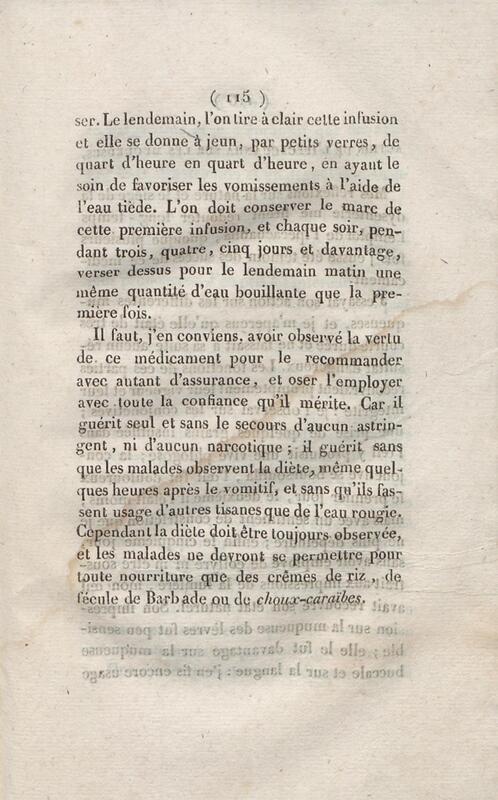 ( 115 )
ser. Le lendemain, l'on tire à clair cette infusion
et elle se donne à jeun, par petits verres, de
quart d'heure en quart d'heure, en ayant le
soin de favoriser les vomissements à l'aide de
l'eau tiède. L'on doit conserver le marc de
cette première infusion, et chaque soir, pen-
dant trois, quatre, cinq jours et davantage,
verser dessus pour le lendemain matin une
même quantité d'eau bouillante que la pre-
mière fois.
Il faut, j'en conviens, avoir observé la vertu
de ce médicament pour le recommander
avec autant d'assurance, et oser l'employer
avec toute la confiance qu'il mérite. Car il
guérit seul et sans le secours d'aucun astrin-
gent, ni d'aucun narcotique ; il guérit sans
que les malades observent la diète, même quel-
ques heures après le vomitif, et sans qu'ils fas-
sent usage d'autres tisanes que de l'eau rougie.
Cependant la diète doit être toujours observée,
et les malades ne devront se permettre pour
toute nourriture que des crêmes de riz, de
fécule de Barbade ou de choux-caraïbes.